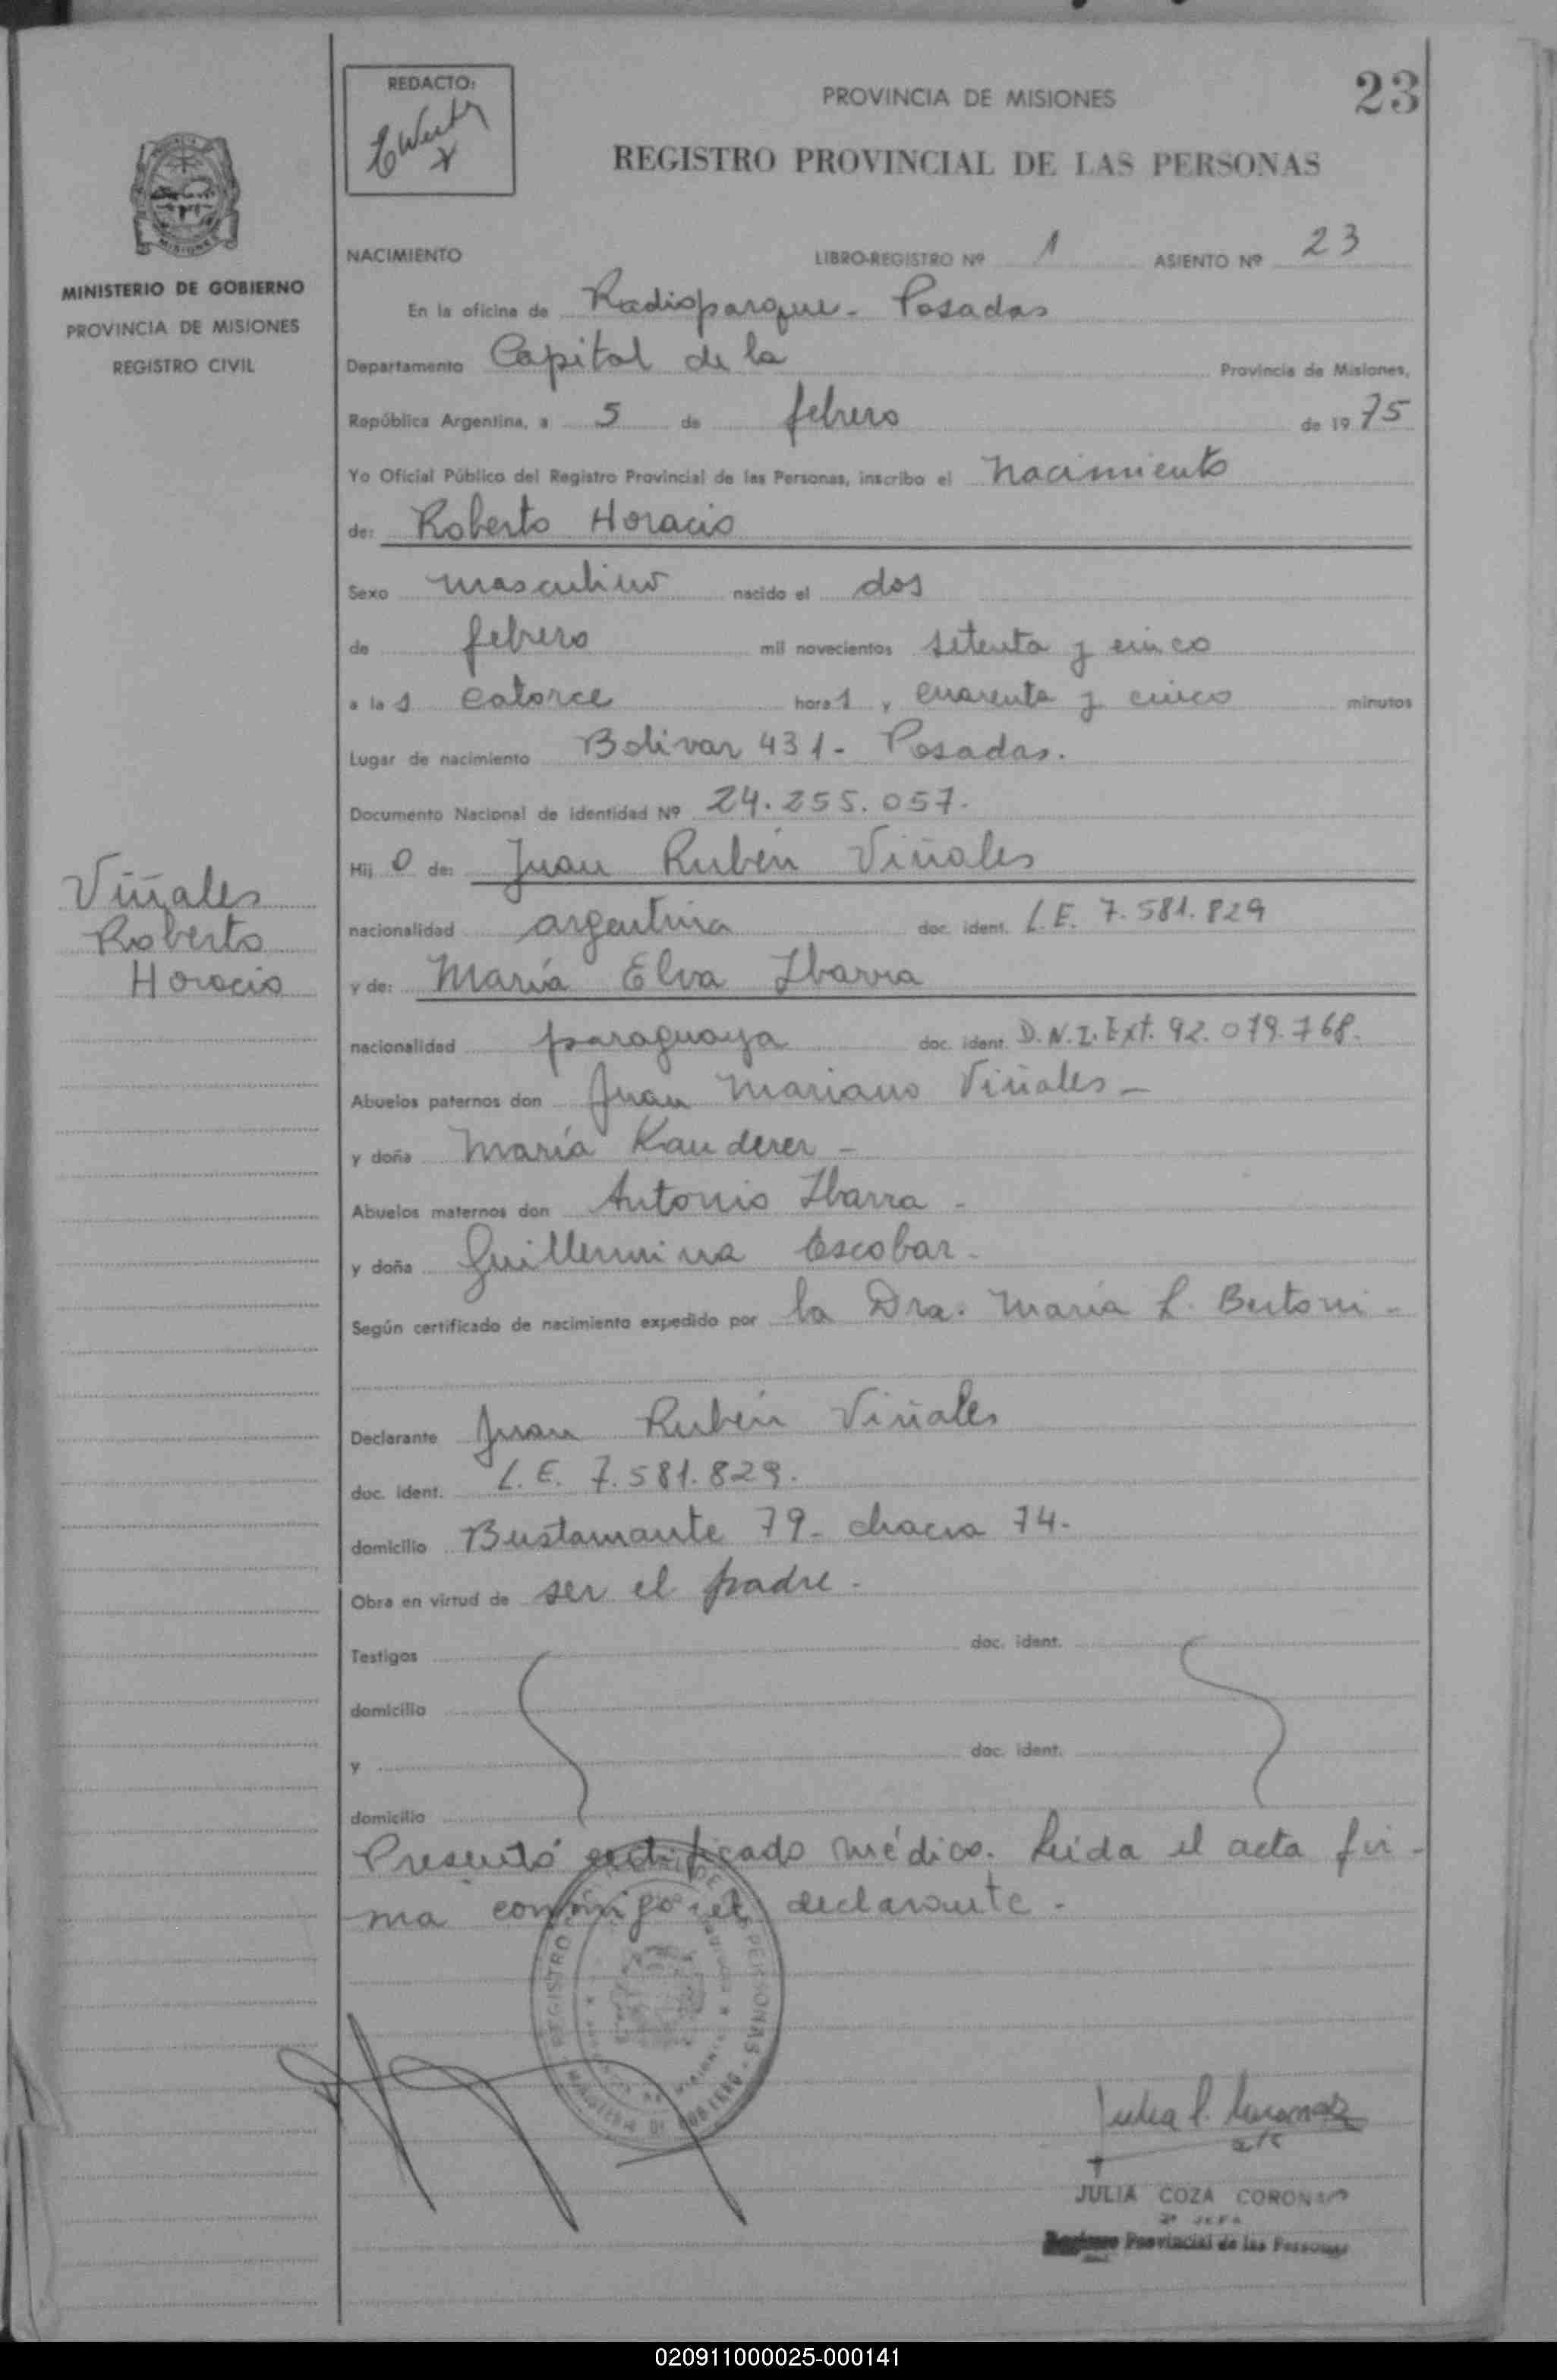 REDACTO:
PROVINCIA DE MISIONES
23
REGISTRO PROVINCIAL DE LAS PERSONAS
MISIONES
MINISTERIO DE GOBIERNO
PROVINCIA DE MISIONES
REGISTRO CIVIL
NACIMIENTO LIBRO-REGISTRO Nº 1 ASIENTO Nº 23
En la oficina de Radioparque - Posadas
Departamento Capital de la Provincia de Misiones,
República Argentina, a 5 de febrero de 19 75
Yo Oficial Público del Registro Provincial de las Personas, inscribo el nacimiento
de: Roberto Horacio
Sexo masculino nacido el dos
de febrero mil novecientos setenta y cinco
a la s catorce hora s y cuarenta y cinco minutos
Lugar de nacimiento Bolivar 431 - Posadas.
Documento Nacional de identidad Nº 24.255.057.
Hij o de: Juan Rubén Viñales
Viñales
Roberto
Horacio
nacionalidad argentina doc. ident. L.E. 7.581.829
y de: María Elva Ibarra
nacionalidad paraguaya doc. ident. D.N.I. Ext. 92.079.768.
Abuelos paternos don Juan Mariano Viñales -
y doña María Kauderer -
Abuelos maternos don Antonio Ibarra -
y doña Guillermina Escobar -
Según certificado de nacimiento expedido por la Dra. María L. Bertoni -
Declarante Juan Rubén Viñales
doc. ident. L.E. 7.581.829.
domicilio Bustamante 79 - chacra 74 -
Obra en virtud de ser el padre -
Testigos doc. ident.
domicilio
y doc. ident.
domicilio
Presentó certificado médico. Leída el acta fir-
ma conmigo el declarante -
REGISTRO PERSONAS
JULIA COZA CORONAS
2º JEFA
Provincial de las Personas
020911000025-000141